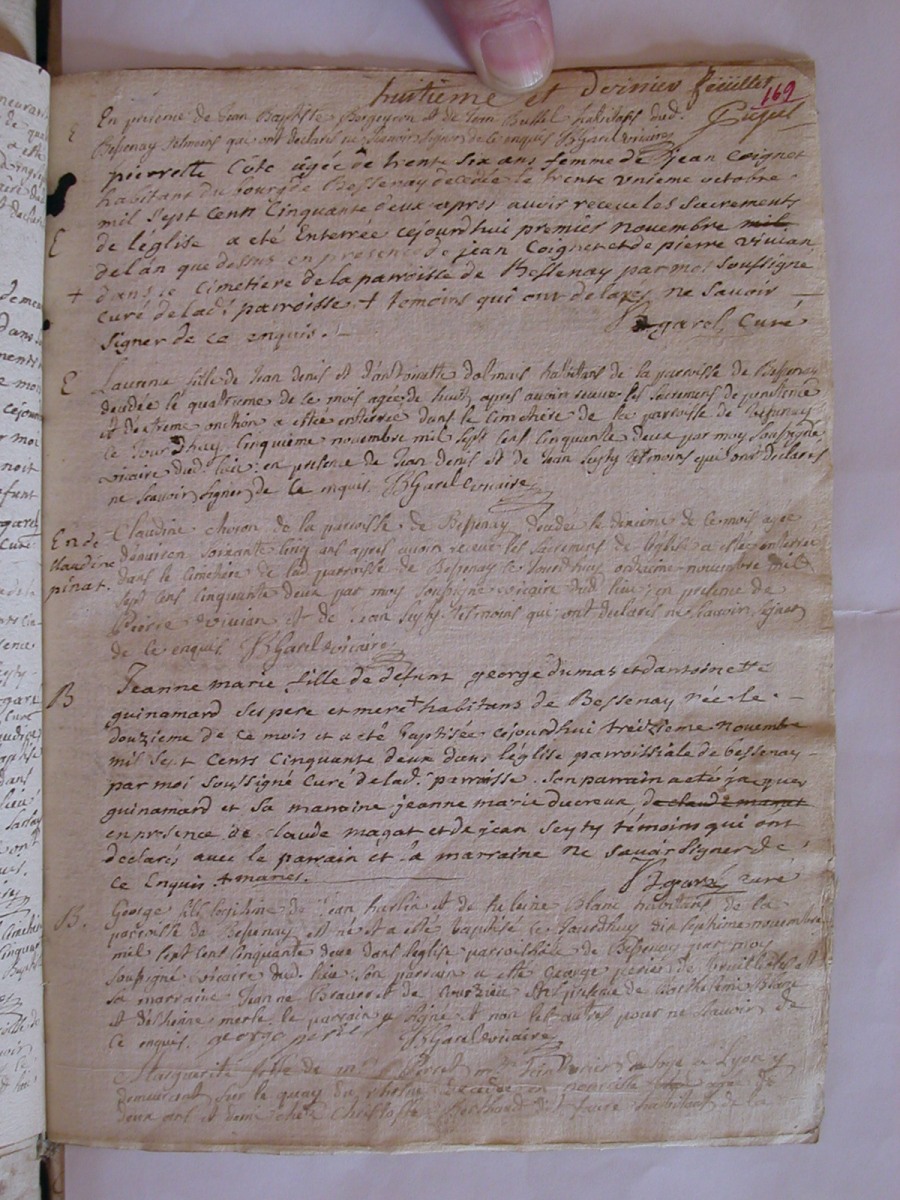 huitieme et dernier feuillet
169
E En presence de Jean Baptiste Bergeyron et de Jean Bussel habitans dud.
Bessenay temoins qui ont declarés ne scavoir signer de ce enquis JBGarel vicaire
pierrette Côte agée de trente six ans femme de jean Coignet
habitant du bourg de Bessenay decedée le trente unieme octobre
mil sept cents Cinquante deux apres avoir receu les sacrements
E de léglise a eté Enterrée cejourdhui premier novembre mil
de lán que dessus en presence de jean Coignet et de pierre vivian
+ dans le Cimetiere de la parroisse de Bessenay par moi soussigné
curé de lad. parroisse + temoins qui ont declarés ne savoir
signer de ce enquis. garel, Curé
E Laurence fille de Jean denis et d'antoinette dolmais habitans de la parroisse de Bessenay
decedée le quatrieme de ce mois agée de huit apres avoir receu les sacremens de penitence
et dextreme onction a estée enterrée dans le cimetiere de la parroisse de Bessenay
ce Jourdhuy Cinquième novembre mil sept cent cinquante deux par moy soussigné
vicaire dud. lieu: en presence de Jean denis et de Jean Seyty tetmoins qui ont declarés
ne scavoir signer de ce enquis JBGarel vicaire
En de Claudine pinat. Claudine choron de la parroisse de Bessenay decedée le dixieme de ce mois agée
denviron soixante cinq ans apres avoir receue les sacremens de leglise a estée enterrée
dans le cimetiere de lad parroisse de Bessenay ce Jourdhuy onzieme novembre mil
sept cens cinquante deux par moy soussigné vicaire dud lieu; en presence de
Pierre vivian et de Jean Seyty tetmoins qui ont declarés ne scavoir signer
de ce enquis JBGarel vicaire
B Jeanne marie fille de défunt george dumas et dantoinette
guinamard ses pere et mere + habitans de Bessenay née le
douzieme de ce mois et a eté baptisée cejourdhui treizieme novembre
mil sept cents Cinquante deux dans léglise parroissiale de bessenay
par moi soussigné Curé de lad. parroisse. son parrain a eté jacques
guinamard et sa maraine jeanne marie ducreux de claude magat
en presence de claude magat et de jean seyty témoins qui ont
declarés avec le parrain et la marraine ne savoir signer de
ce Enquis + mariés. garel, curé
B. George fils legitime de Jean berlin et de heleine Blanc habitans de la
parroisse de Bessenay est né et a esté baptisé ce Jourdhuy dix septieme novembre
mil sept cent cinquante deux dans leglise parroissiale de Bessenay par moy
soussigné vicaire dud. lieu: son parrain a esté George perier de
sa marraine Jeanne de Courzieu et en presence de Barthelemi Blanc
et d'estienne merle le parrain a signé et non les autres pour ne scavoir de
ce enquis. george perier JBGarel vicaire
Marguerite fille de mr. Perret et Perier de soye a Lyon y
demeurant sur le quay du rhosne decedée en nourisse agée de
deux ans et demi chés Christophe Berthaud dit faure habitant de la